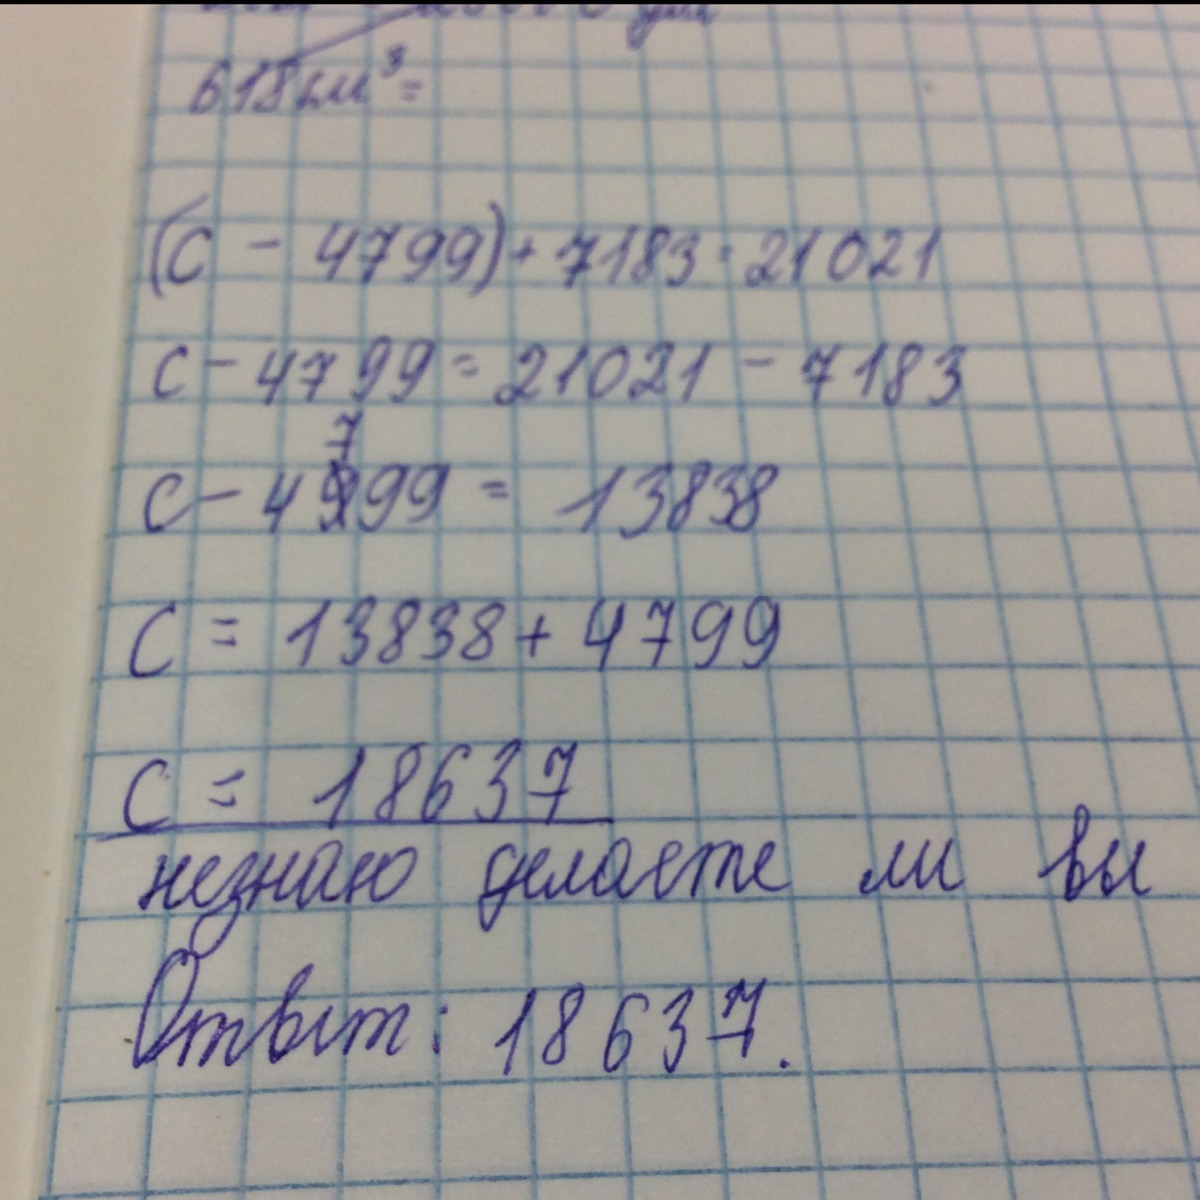 618 см³ =
(с - 4799) + 7183 = 21021
с - 4799 = 21021 - 7183
7
с - 4999 = 13838
с = 13838 + 4799
с = 18637
незнаю делаете ли вы
Ответ: 18637.